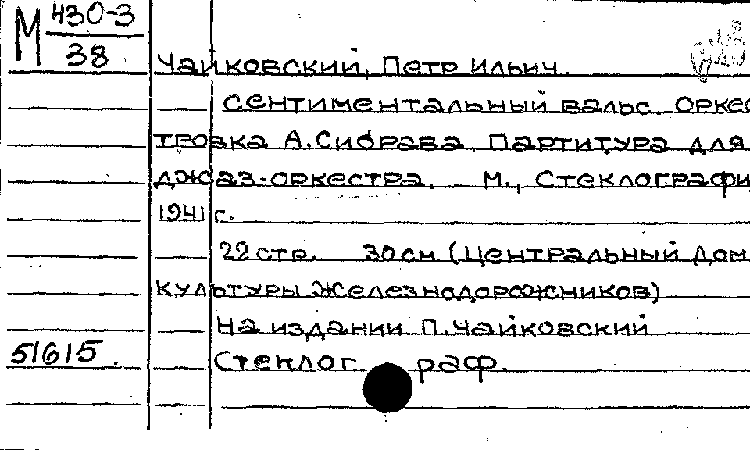 М 430-3
38
Чайковский, Петр Ильич.
Сентиментальный вальс. Оркес
тровка А. Сибрава. Партитура для
джаз-оркестра. М., Стеклографи
1941 г.
22 стр. 30 см (Центральный Дом
культуры железнодорожников)
На издании П. Чайковский
51615.
Стеклог раф.